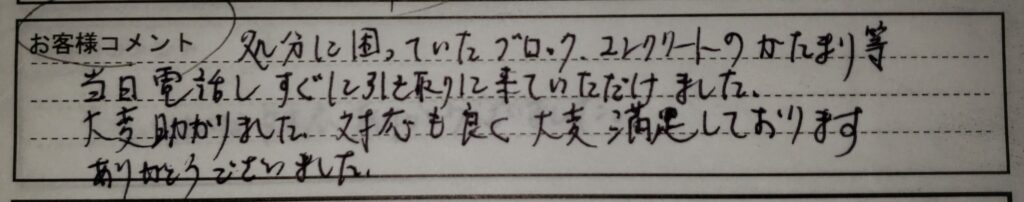 お客様コメント 処分に困っていたブロック、コンクリートのかたまり等
当日電話しすぐに引き取りに来ていただけました。
大変助かりました。対応も良く大変満足しております
ありがとうございました。